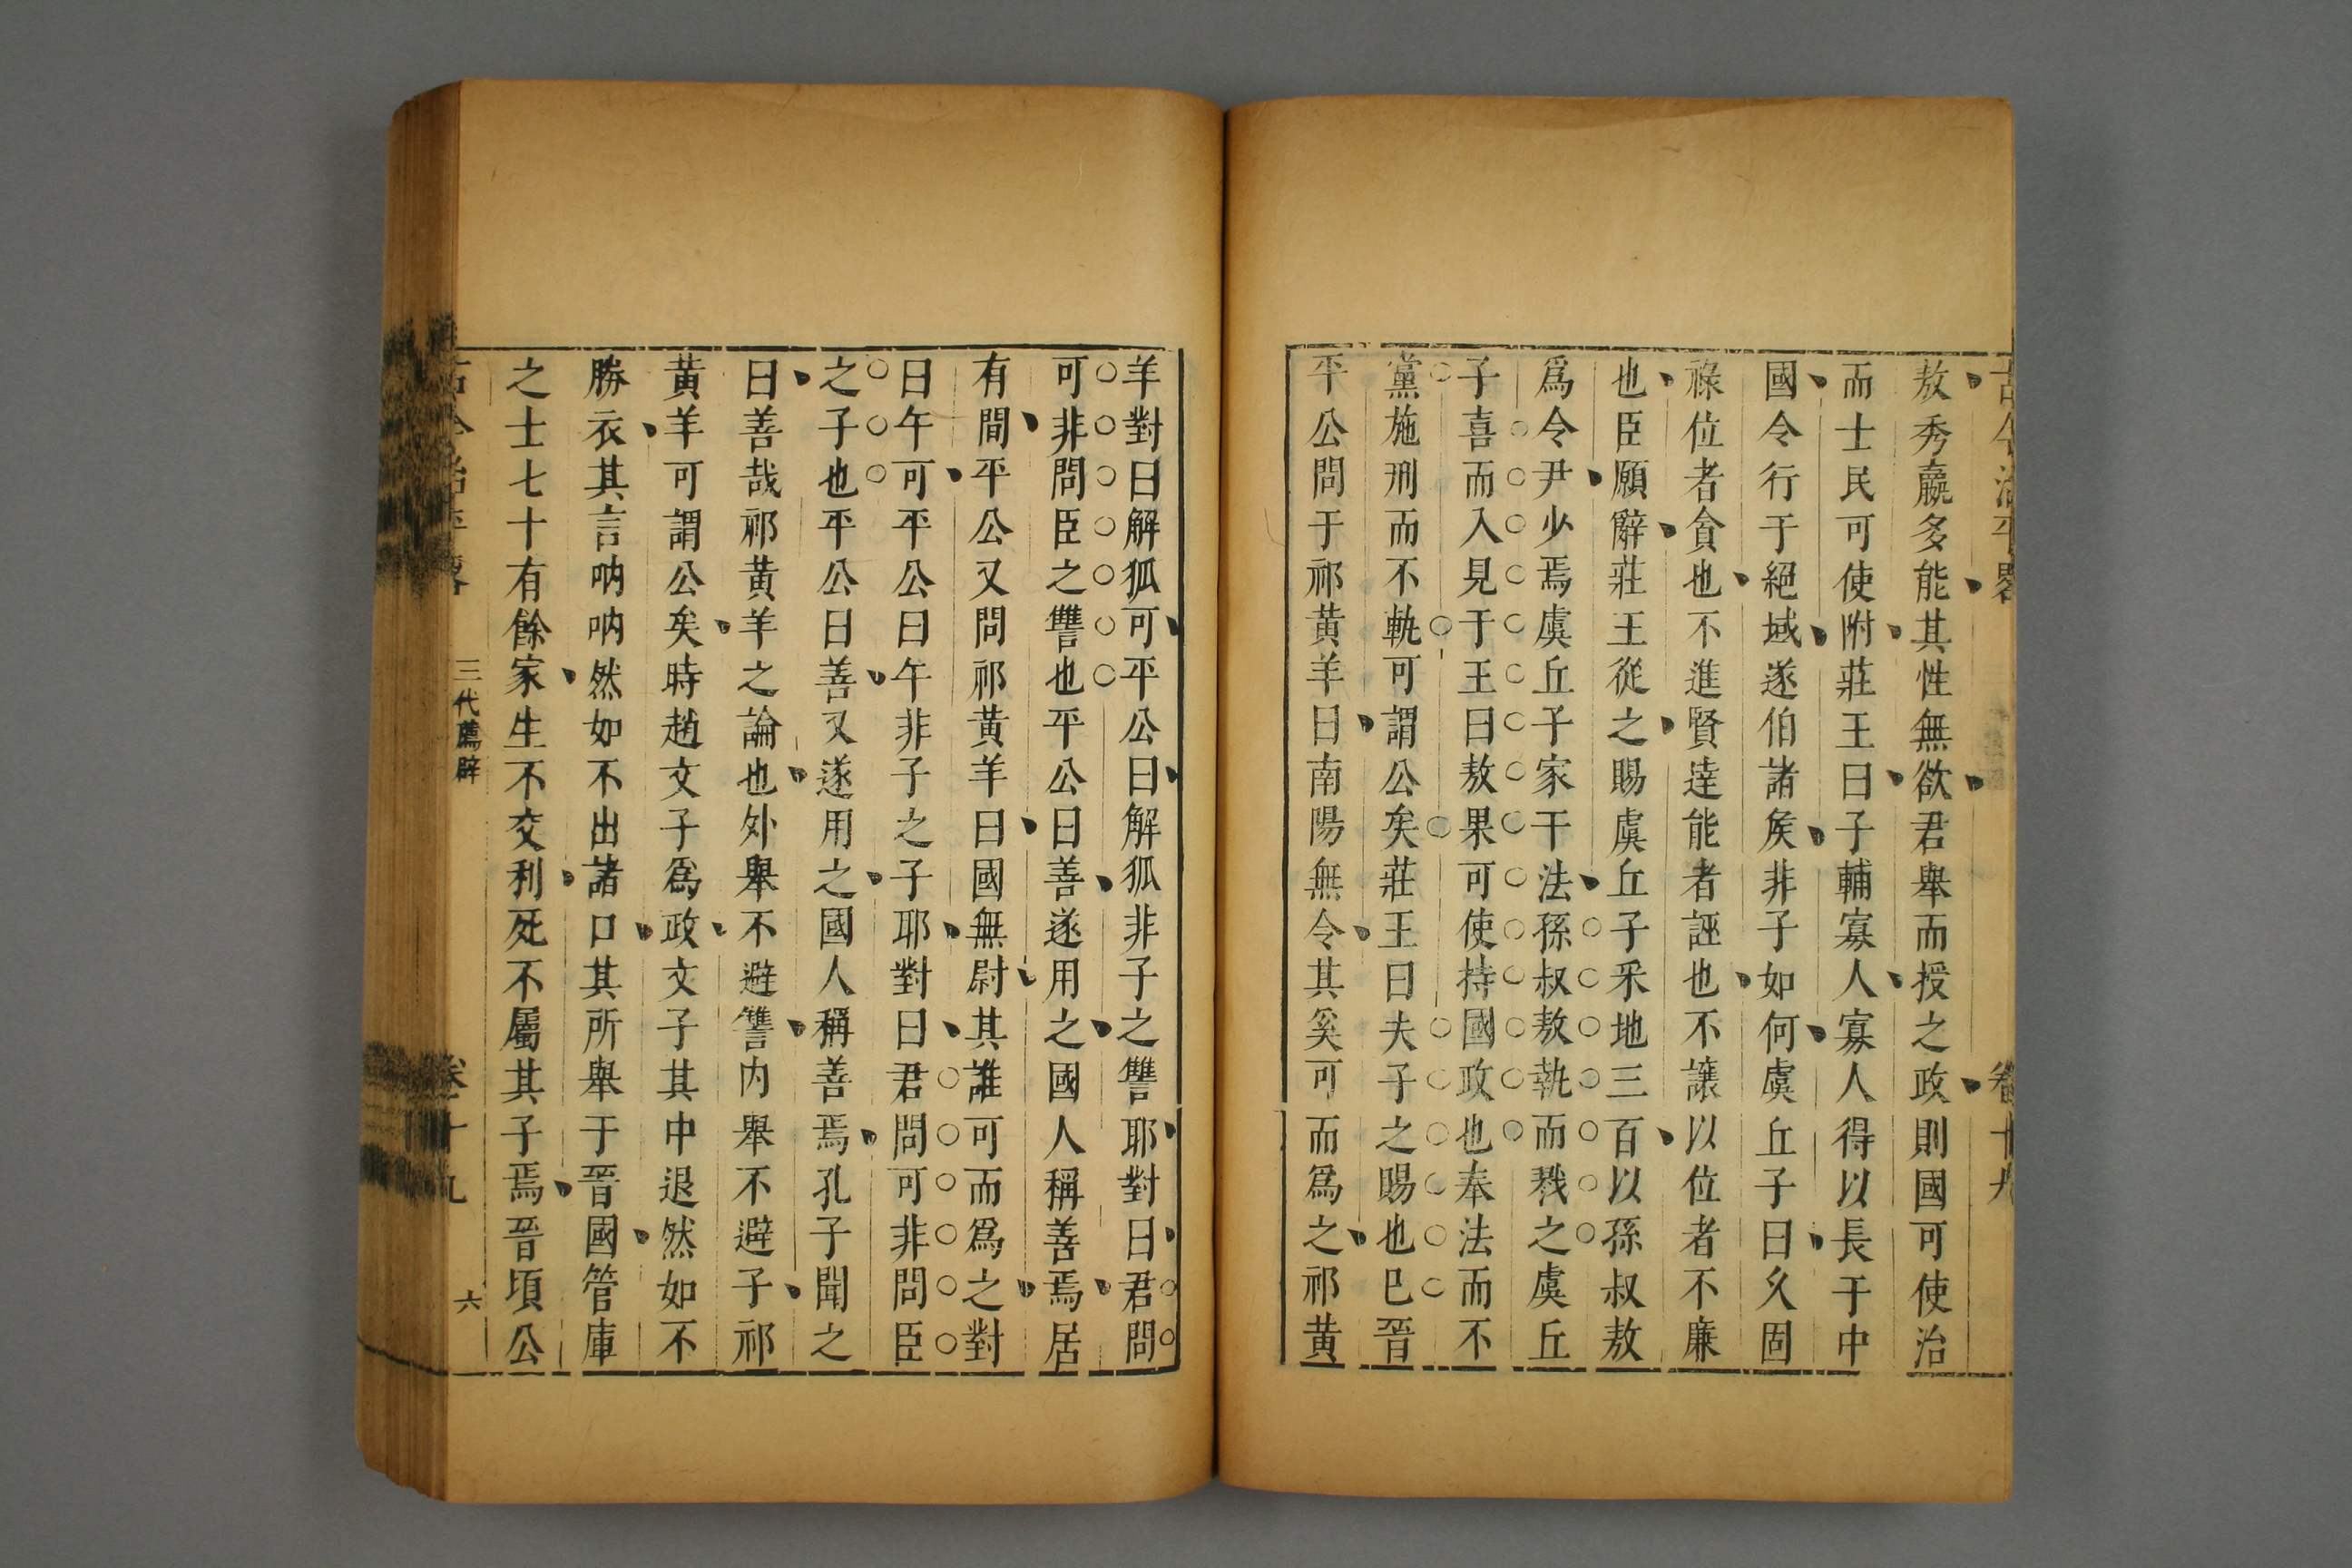 古今治平畧
卷十九
敖秀羸多能其性無欲君舉而授之政則國可使治
而士民可使附莊王曰子輔寡人寡人得以長于中
國令行于絕域遂伯諸矦非子如何虞丘子曰久固
祿位者貪也不進賢逹能者誣也不讓以位者不廉
也臣願辭莊王從之賜虞丘子采地三百以孫叔敖
爲令尹少焉虞丘子家干法孫叔敖執而戮之虞丘
子喜而入見于王曰敖果可使持國政也奉法而不
黨施刑而不軌可謂公矣莊王曰夫子之賜也巳晉
平公問于祁黃羊曰南陽無令其奚可而爲之祁黃
羊對曰解狐可平公曰解狐非子之讐耶對曰君問
可非問臣之讐也平公曰善遂用之國人稱善焉居
有間平公又問祁黃羊曰國無尉其誰可而爲之對
曰午可平公曰午非子之子耶對曰君問可非問臣
之子也平公曰善又遂用之國人稱善焉孔子聞之
曰善哉祁黃羊之論也外舉不避讐内舉不避子祁
黃羊可謂公矣時趙文子爲政文子其中退然如不
勝衣其言吶吶然如不出諸口其所舉于晉國管庫
之士七十有餘家生不交利死不屬其子焉晉頃公
古今治平畧
三代薦辟
卷十九
六